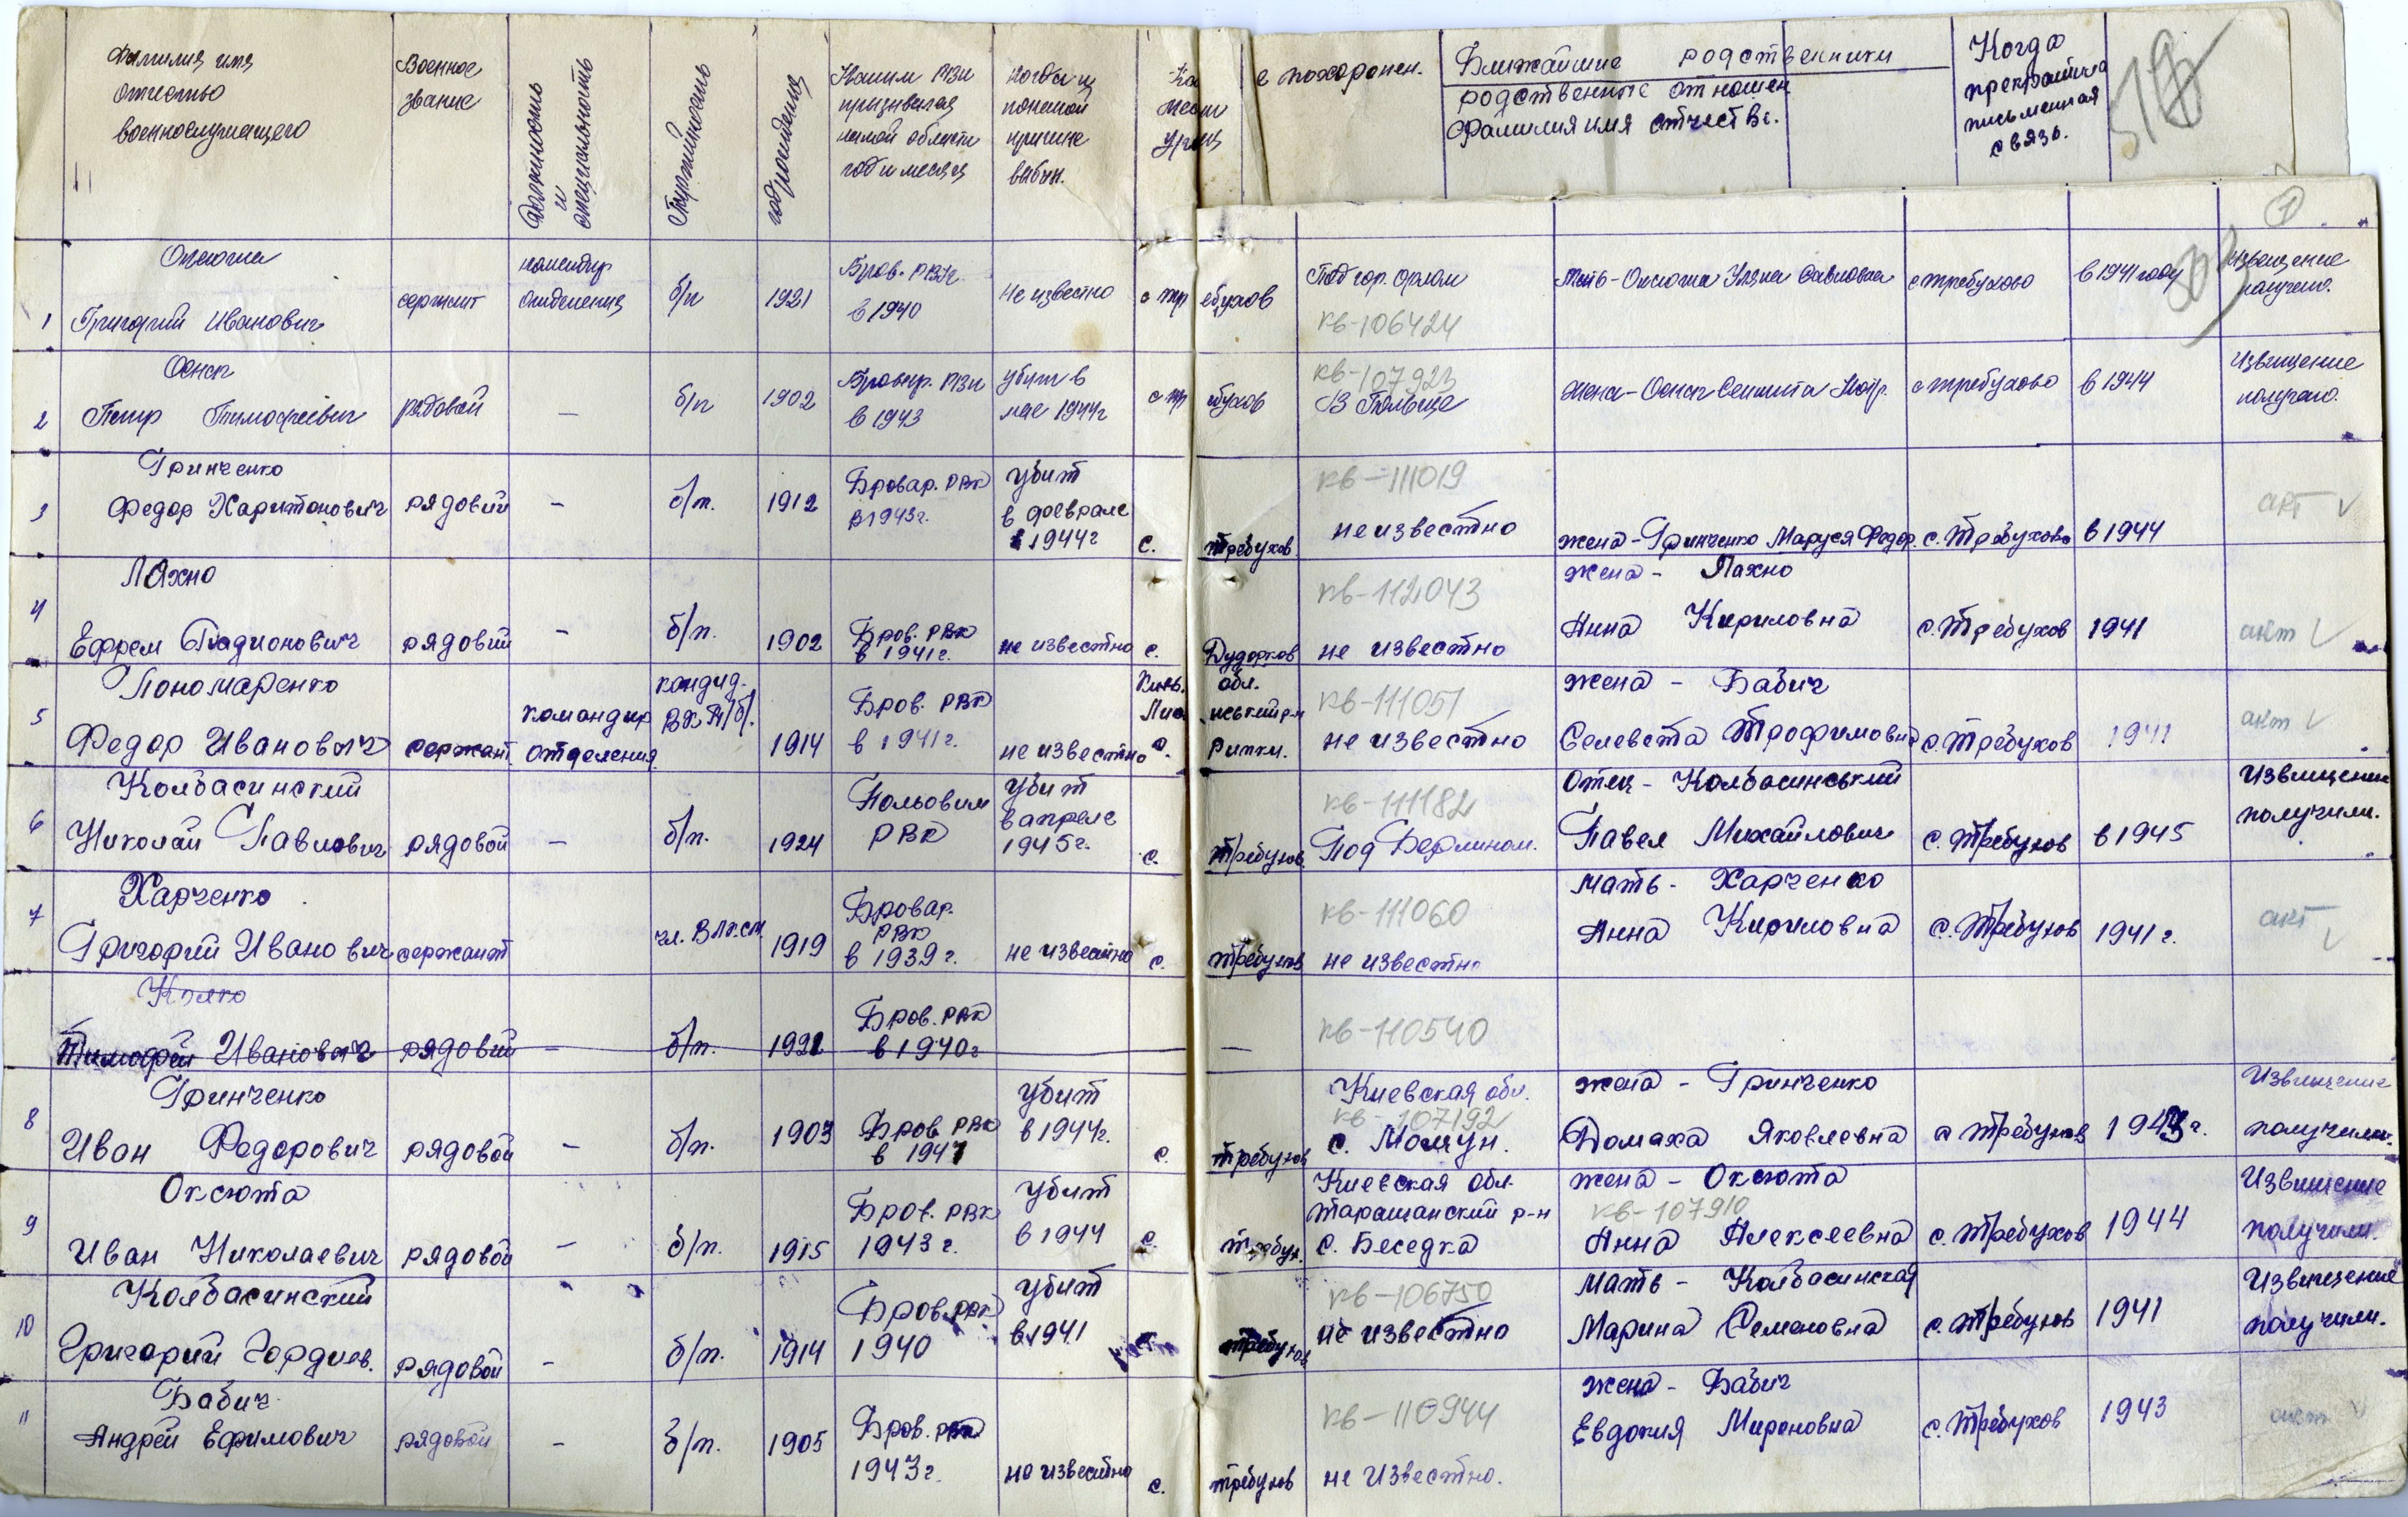 Фамилия имя
отчество
военнослужащего
Военное
звание
Должность
и
специальность
Партийность
год рождения
Каким РВК
призывался
какой области
год и месяц
когда и
по какой
причине
выбыл.
е похоронен.
Ближайшие родственники
родственные отношен
фамилия имя отчество.
Когда
прекратила
письменная
связь.
1
1 Оксюта
Григорий Иванович
сержант
командир
отделения
б/п
1921
Бров. РВК
в 1940
Не известно
с тр ебухов
Под гор. Орлом
кв-106424
Мать - Оксюта Ульяна Савловна
с требухово
в 1941 году
Извещение
получено.
2
Петр Тимофеевич
рядовой
–
б/п
1902
Бровар. РВК
в 1943
убит в
мае 1944г
с тр ебухов
кв-107923
В Польше
с требухово
в 1944
Извищение
получено.
3 Гринченко
Федор Харитонович
рядовий
–
б/п.
1912
Бровар. РВК
в 1943г.
убит
в феврале
1944г
с. требухов
кв-111019
не известно
жена - Гринченко Маруся Федор.
с. Требухово
в 1944
акт V
4 Ляхно
Ефрем Радионович
рядовий
–
б/п.
1902
Бров. РВК
в 1941г.
не известно
с. Дударков
кв-112043
не известно
жена - Ляхно
Анна Кириловна
с. Требухов
1941
акт V
5 Пономаренко
Федор Иванович
сержант.
командир
отделения
кандид.
ВКП/б/.
1914
Бров. РВК
в 1941г.
не известно
обл.
с. Рипки.
кв-111051
не известно
жена - Бабич
Селевста Трофимовна
с. Требухов
1941
акт V
6 Колбасинский
Николай Павлович
рядовой
–
б/п.
1924
Польовим
РВК
убит
в апреле
1945г.
с. Требухов
кв-111182
Под Берлином.
Отец - Колбасинський
Павел Михайлович
с. Требухов
в 1945
Извищение
получили.
7 Харченко
Григорий Иванович
сержант
чл. ВЛКСМ
1919
Бровар.
РВК
в 1939г.
не известно
с. требухов
кв-111060
не известно
Мать - Харченко
Анна Кириловна
с. Требухов
1941г.
акт
V
Тимофей Иванович
рядовий
–
б/п.
1921
Бров. РВК
в 1940г
–
кв-110540
8 Гринченко
Иван Федорович
рядовой
–
б/п.
1903
Бров. РВК
в 1941
убит
в 1944г.
с. требухов
Киевская обл.
кв-107192
с. Мощун.
жена - Гринченко
Домаха Яковлевна
с требухов
1943г.
Извищение
получили.
9 Оксюта
Иван Николаевич
рядовой
–
б/п.
1915
Бров. РВК
1943г.
убит
в 1944
с. требух.
Киевская обл.
таращанский р-н
с. Беседка
жена - Оксюта
кв-107910
Анна Алексеевна
с. Требухов
1944
Извищение
получили.
10 Колбасинский
Григорий Гордиев.
рядовой
–
б/п.
1914
Бров. РВК
1940
убит
в 1941
требухов
кв-106750
не известно
Мать - Колбасинская
Марина Семеновна
с. Требухов
1941
Извищение
получили.
11 Бабич
Андрей Ефимович
рядовой
–
б/п.
1905
Бров. РВК
1943г.
не известно
с. требухов
кв-110944
не известно.
жена - Бабич
Евдокия Мироновна
с. Требухов
1943
акт V